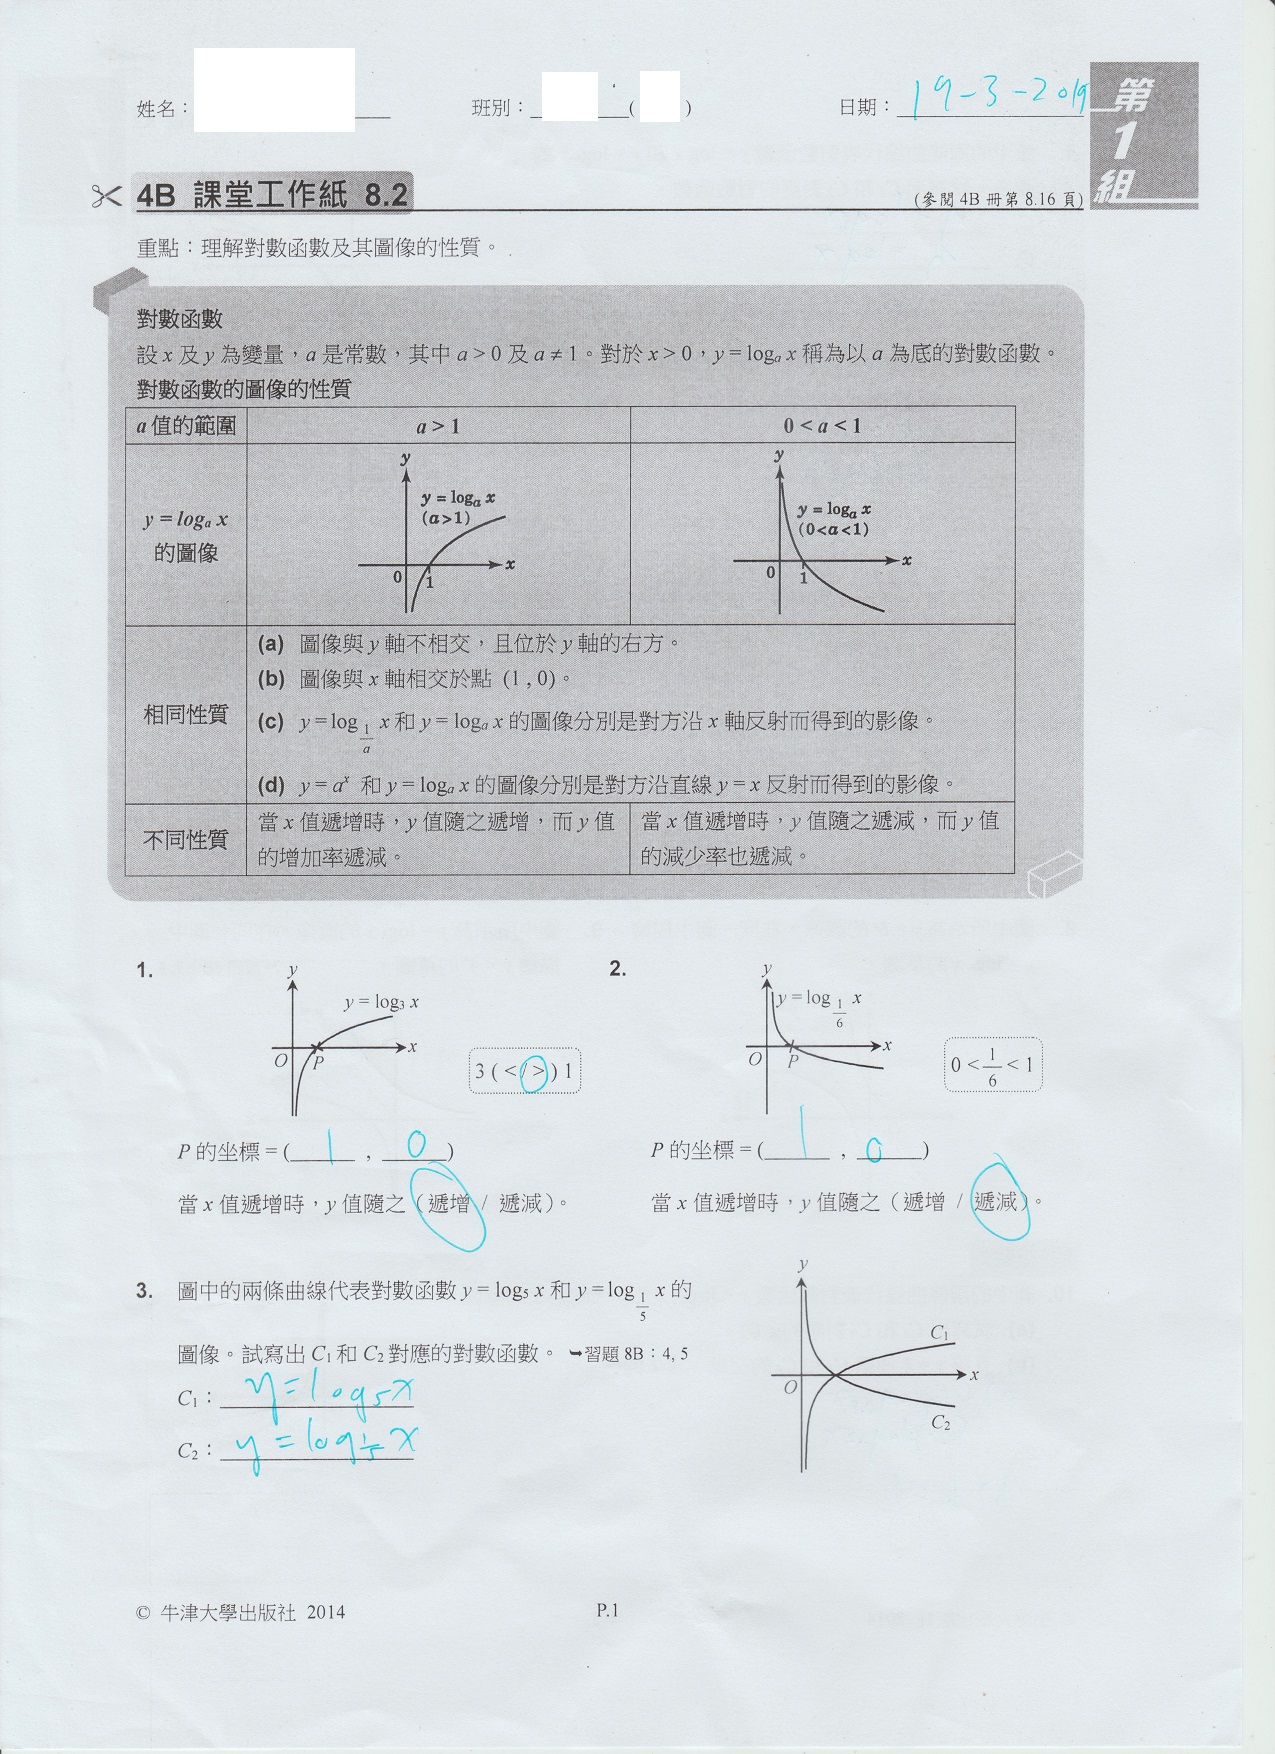 姓名：
班別：( )
日期：19-3-2019
第1組
4B 課堂工作紙 8.2
(參閱 4B 冊第 8.16 頁)
重點：理解對數函數及其圖像的性質。
對數函數
設 x 及 y 為變量，a 是常數，其中 a > 0 及 a ≠ 1。對於 x > 0，y = logₐ x 稱為以 a 為底的對數函數。
對數函數的圖像的性質
a 值的範圍
a > 1
0 < a < 1
y = logₐ x
的圖像
y
y = logₐ x
(a>1)
x
0
1
y
y = logₐ x
(0<a<1)
x
0
1
相同性質
(a) 圖像與 y 軸不相交，且位於 y 軸的右方。
(b) 圖像與 x 軸相交於點 (1 , 0)。
(c) y = log_(1/a) x 和 y = logₐ x 的圖像分別是對方沿 x 軸反射而得到的影像。
(d) y = aˣ 和 y = logₐ x 的圖像分別是對方沿直線 y = x 反射而得到的影像。
不同性質
當 x 值遞增時，y 值隨之遞增，而 y 值
的增加率遞減。
當 x 值遞增時，y 值隨之遞減，而 y 值
的減少率也遞減。
1.
y
y = log₃ x
O
P
x
3 ( < / > ) 1
P 的坐標 = ( 1 , 0 )
當 x 值遞增時，y 值隨之（遞增 / 遞減）。
2.
y
y = log_(1/6) x
O
P
x
0 < 1/6 < 1
P 的坐標 = ( 1 , 0 )
當 x 值遞增時，y 值隨之（遞增 / 遞減）。
3. 圖中的兩條曲線代表對數函數 y = log₅ x 和 y = log_(1/5) x 的
圖像。試寫出 C₁ 和 C₂ 對應的對數函數。 ➥習題 8B：4, 5
C₁： y = log₅x
C₂： y = log_(1/5) x
y
C₁
O
x
C₂
© 牛津大學出版社 2014
P.1